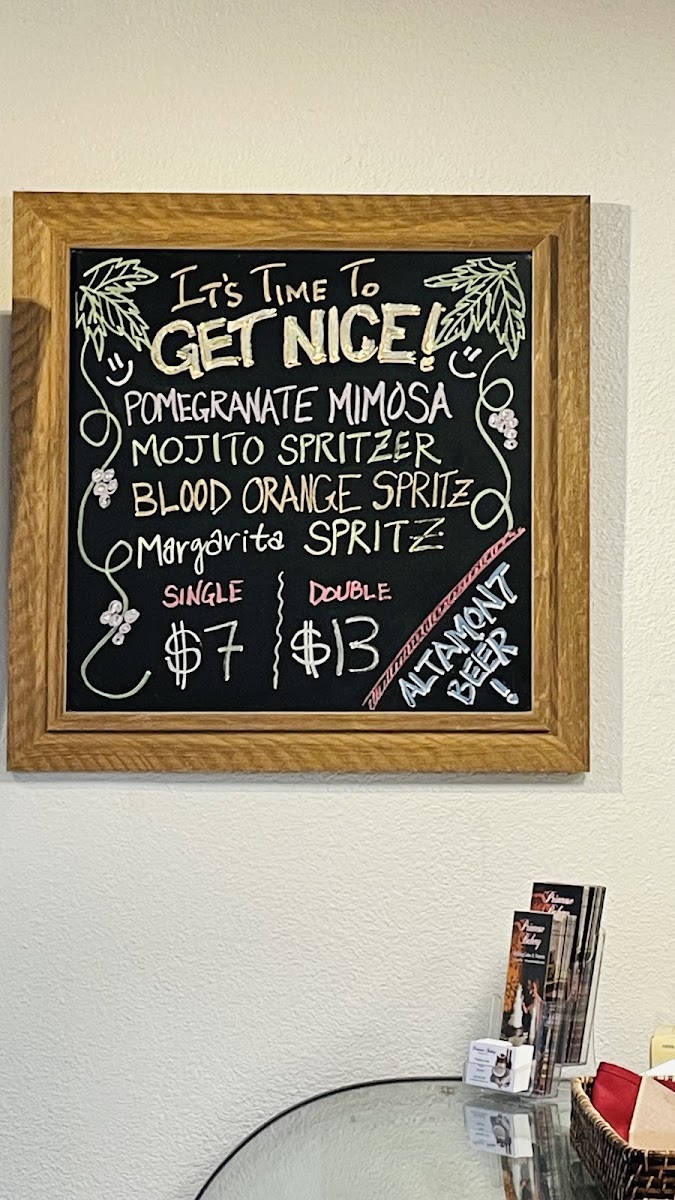 It's Time To
GET NICE!
POMEGRANATE MIMOSA
MOJITO SPRITZER
BLOOD ORANGE SPRITZ
Margarita SPRITZ
SINGLE DOUBLE
$7 $13
ALTAMONT
BEER!